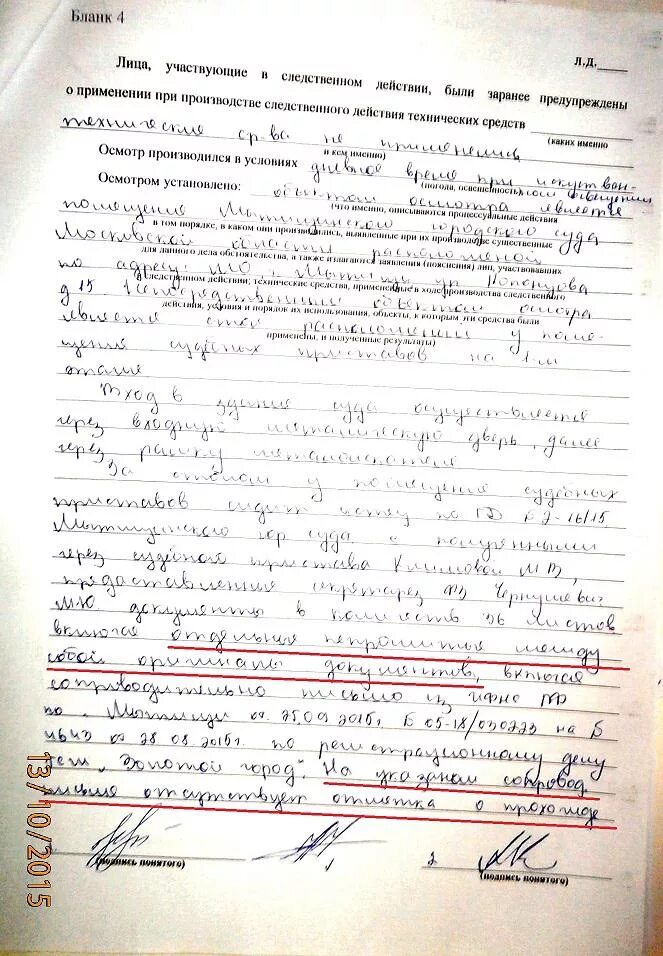 Бланк 4
л.д.
Лица, участвующие в следственном действии, были заранее предупреждены
о применении при производстве следственного действия технических средств
(каких именно
технические ср-ва не применялись
и кем именно)
Осмотр производился в условиях дневное время при искуствен-
(погода, освещенность)
ном освещении
Осмотром установлено: объектом осмотра является
(что именно, описываются процессуальные действия
помещение Мытищинского городского суда
в том порядке, в каком они производились, выявленные при их производстве существенные
Московской области расположенной
для данного дела обстоятельства, а также излагаются заявления (пояснения) лиц, участвовавших
по адресу: МО, г. Мытищи ул
следственном действии; технические средства, примененные в ходе производства следственного
д 15 Непосредственным объектом осмотра
действия, условия и порядок их использования, объекты, к которым эти средства были
является стол расположенный у поме-
применены, и полученные результаты)
щения судебных приставов на 1-м
этаже
Вход в здание суда осуществляется
через входную металическую дверь, далее
через рамку металоискателя
За столом у помещения судебных
приставов сидит истец по ГД 2-16/15
Мытищинского гор суда с полученными
через судебного пристава Климовой МВ,
предоставленные секретарем
МЮ документы в количеств 36 листов
включая отдельные непрошитые между
собой оригиналы документов, включая
сопроводительно письмо из ИФНС РФ
по г. Мытищи от 25.09 2015г 05-18/030223 на
от 28 08.2015г. по регистрационному делу
"Золотой город". На указаном сопровод.
письме отсутствует отметка о
(подпись понятого)
1
2
(подпись понятого)
13/10/2015